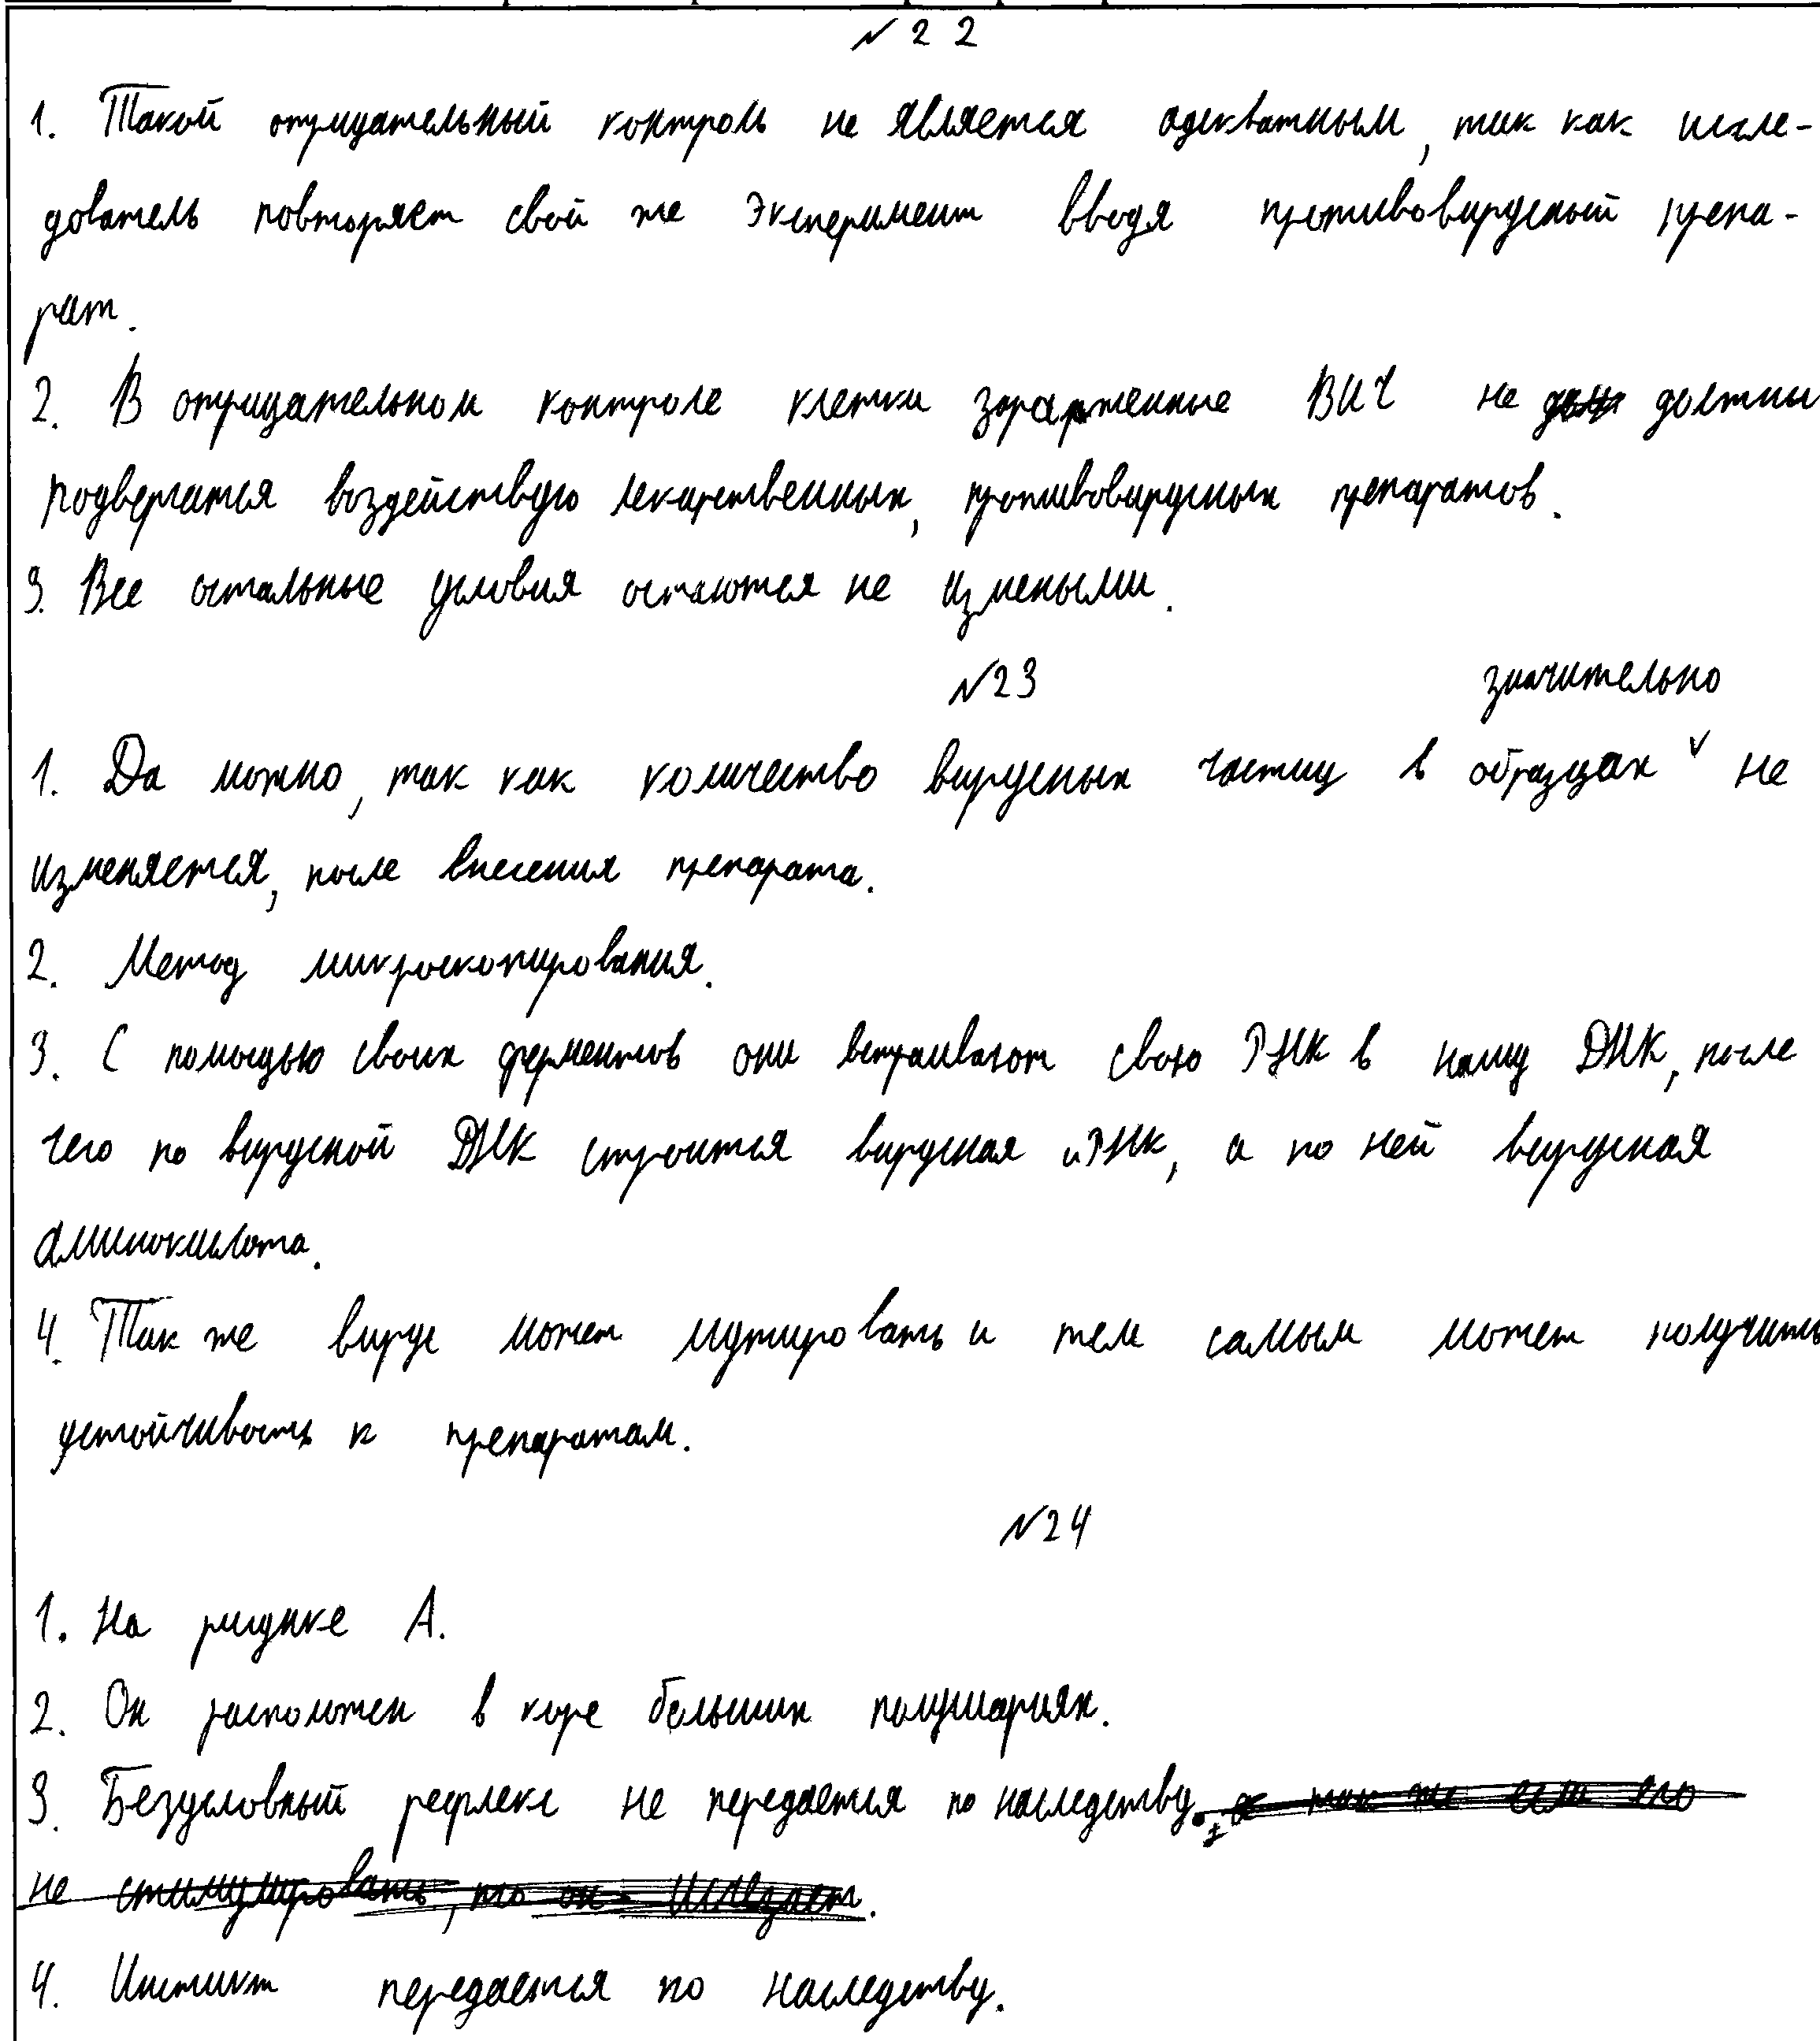 № 22
1. Такой отрицательный контроль не является адекватным, так как иссле-
дователь повторяет свой же эксперимент вводя противовирусный препа-
рат.
2. В отрицательном контроле клетки зараженные ВИЧ не должны
подвергатся воздействую лекарственных, противовирусных препаратов.
3. Все остальные условия остаются не измеными.
№23
1. Да можно, так как количество вирусных частиц в образцах значительно не
изменяется, после внесения препарата.
2. Метод микроскопирования.
3. С помощью своих ферментов они встраивают свою РНК в нашу ДНК, после
чего по вирусной ДНК строится вирусная иРНК, а по ней вирусная
аминокислота.
4. Так же вирус может мутировать и тем самым может получить
устойчивость к препаратам.
№24
1. На рисунке А.
2. Он расположен в коре больших полушариях.
3. Безусловный рефлекс не передается по наследству. а так же если его
не стимулировать, то он исчезает.
4. Инстинкт передается по наследству.